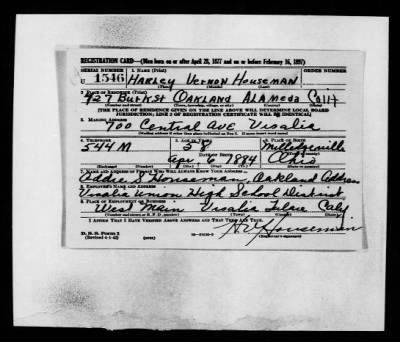 REGISTRATION CARD—(Men born on or after April 28, 1877 and on or before February 16, 1897)
SERIAL NUMBER 1. NAME (Print) ORDER NUMBER
U 1546 HARLEY VERNON HOUSEMAN
(First) (Middle) (Last)
2. PLACE OF RESIDENCE (Print)
427 Burk St OAKLAND ALAMEDA Calif
(Number and street) (Town, township, village, or city) (County) (State)
[THE PLACE OF RESIDENCE GIVEN ON THE LINE ABOVE WILL DETERMINE LOCAL BOARD
JURISDICTION; LINE 2 OF REGISTRATION CERTIFICATE WILL BE IDENTICAL]
3. MAILING ADDRESS
700 Central Ave Visalia
[Mailing address if other than place indicated on line 2. If same insert word same]
4. TELEPHONE 5. AGE IN YEARS 6. PLACE OF BIRTH
544 M 58 Milledgeville
DATE OF BIRTH (Town or county)
Apr 6 1884 Ohio
(Exchange) (Number) (Mo.) (Day) (Yr.) (State or country)
7. NAME AND ADDRESS OF PERSON WHO WILL ALWAYS KNOW YOUR ADDRESS
Addie S Houseman, Oakland Address
8. EMPLOYER'S NAME AND ADDRESS
Visalia Union High School District
9. PLACE OF EMPLOYMENT OR BUSINESS
West Main Visalia Tulare Calif
(Number and street or R. F. D. number) (Town) (County) (State)
I AFFIRM THAT I HAVE VERIFIED ABOVE ANSWERS AND THAT THEY ARE TRUE.
D. S. S. Form 1
(Revised 4-1-42) H V Houseman